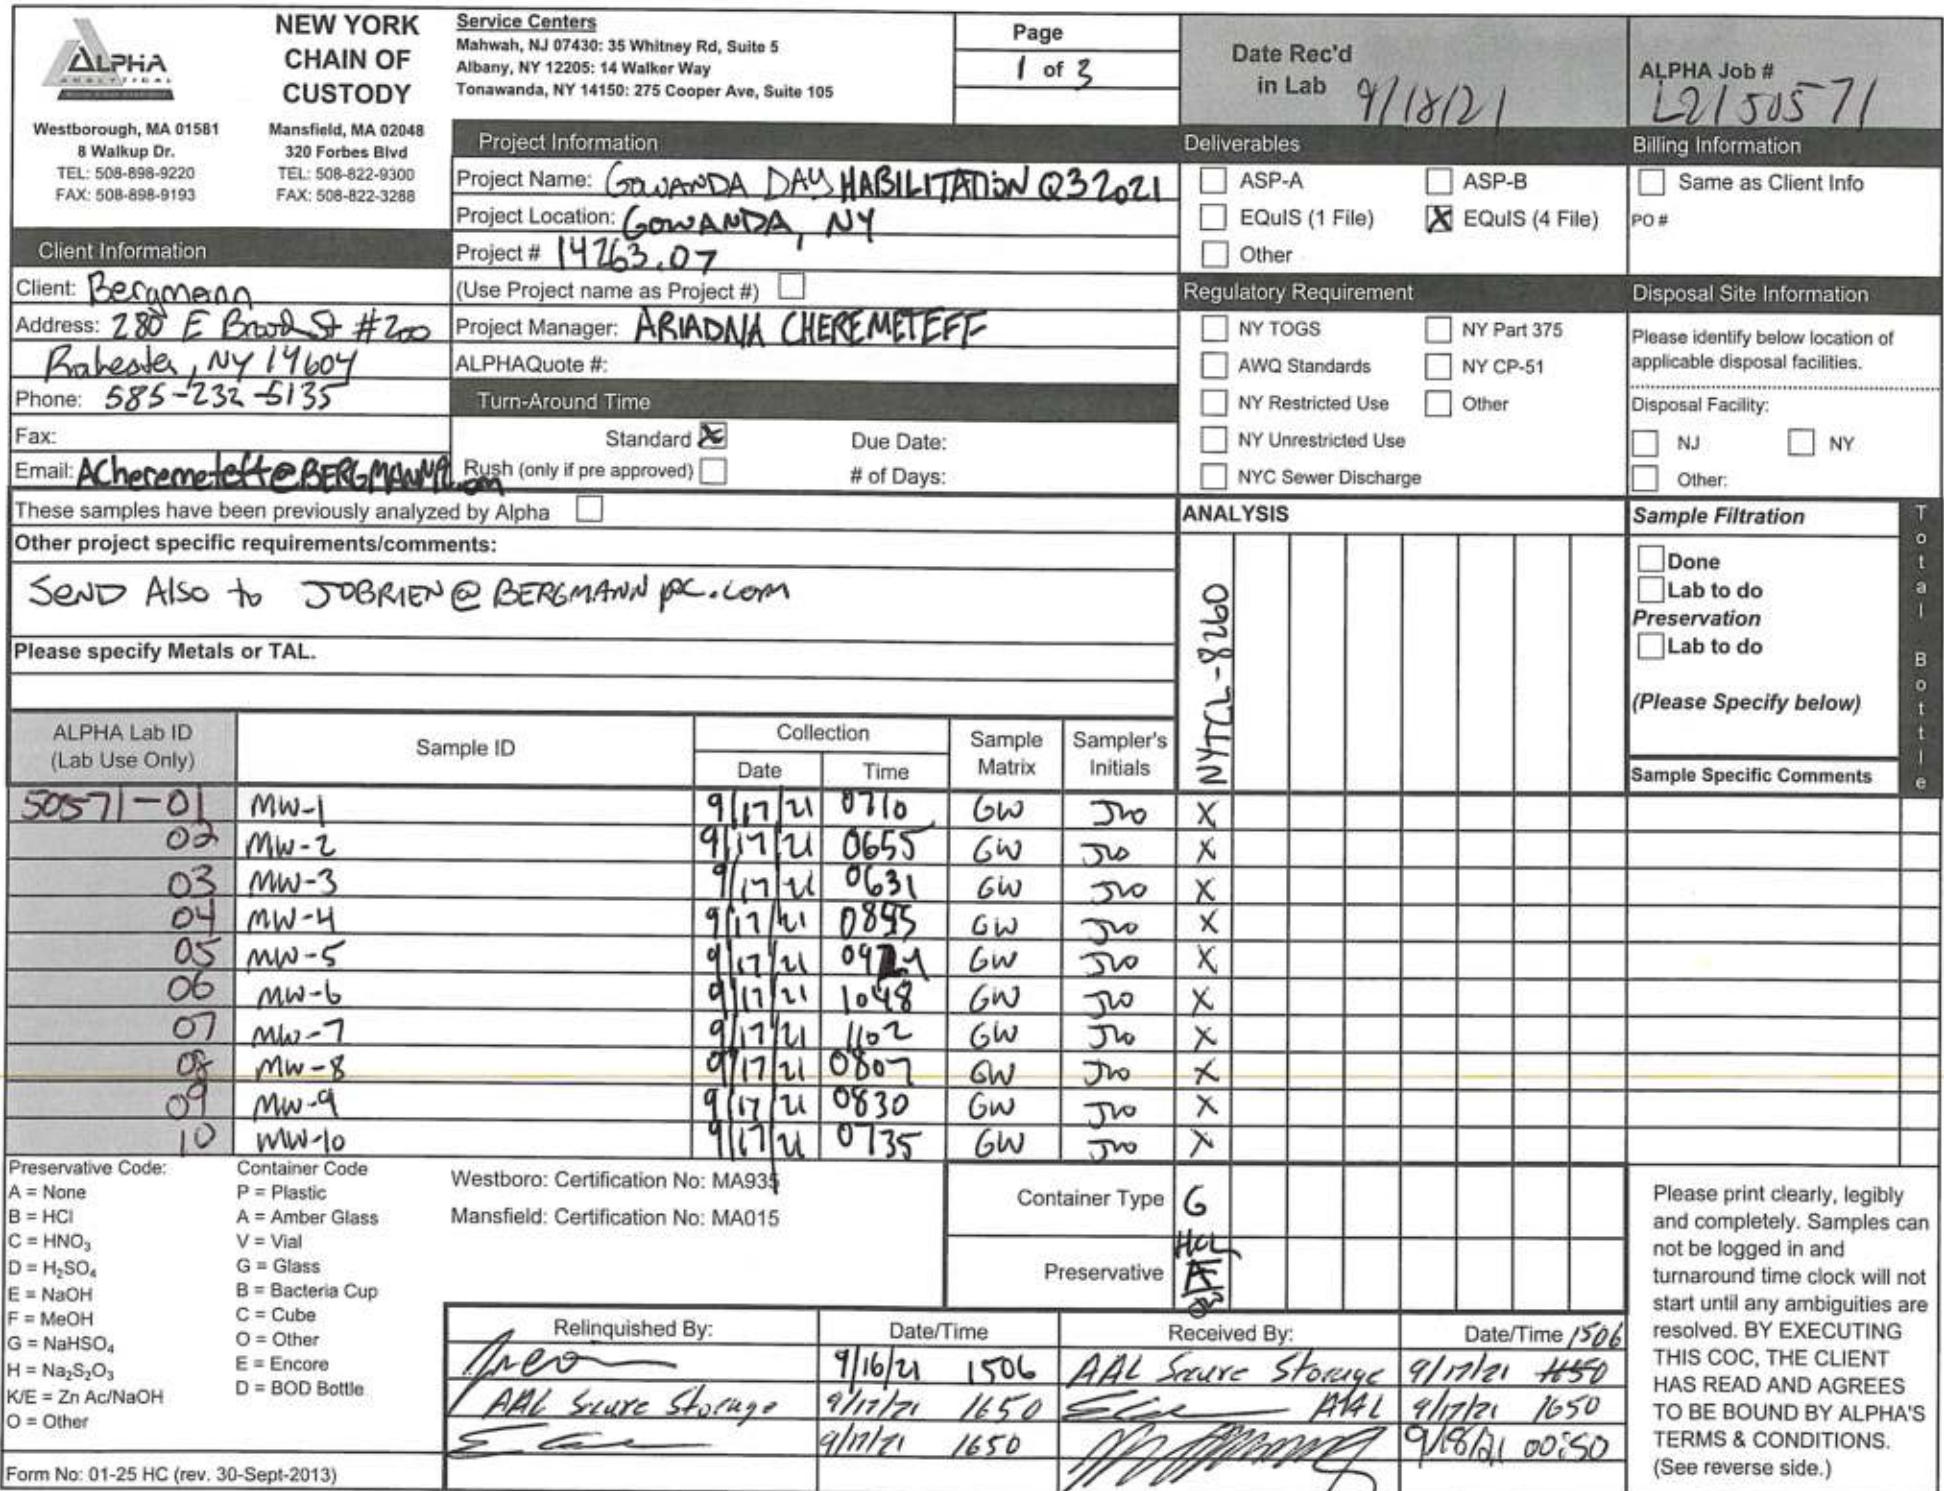 ALPHA
ANALYTICAL
Westborough, MA 01581
8 Walkup Dr.
TEL: 508-898-9220
FAX: 508-898-9193
NEW YORK
CHAIN OF
CUSTODY
Mansfield, MA 02048
320 Forbes Blvd
TEL: 508-822-9300
FAX: 508-822-3288
Service Centers
Mahwah, NJ 07430: 35 Whitney Rd, Suite 5
Albany, NY 12205: 14 Walker Way
Tonawanda, NY 14150: 275 Cooper Ave, Suite 105
Page
1 of 3
Date Rec'd
in Lab 9/18/21
ALPHA Job #
L2150571
Project Information
Project Name: GOWANDA DAY HABILITATION Q3 2021
Project Location: GOWANDA, NY
Project # 14263.07
(Use Project name as Project #)
Project Manager: ARIADNA CHEREMETEFF
ALPHAQuote #:
Turn-Around Time
Standard X Due Date:
Rush (only if pre approved) # of Days:
Client Information
Client: Bergmann
Address: 280 E Broad St #200
Rochester, NY 14604
Phone: 585-232-5135
Fax:
Email: ACheremeteff@BERGMANNPC.com
Deliverables
ASP-A ASP-B
EQuIS (1 File) X EQuIS (4 File)
Other
Regulatory Requirement
NY TOGS NY Part 375
AWQ Standards NY CP-51
NY Restricted Use Other
NY Unrestricted Use
NYC Sewer Discharge
Billing Information
Same as Client Info
PO #
Disposal Site Information
Please identify below location of
applicable disposal facilities.
Disposal Facility:
NJ NY
Other:
These samples have been previously analyzed by Alpha
Other project specific requirements/comments:
SEND Also to JOBRIEN@BERGMANNpc.com
Please specify Metals or TAL.
ANALYSIS
NYTCL-8260
Sample Filtration
Done
Lab to do
Preservation
Lab to do
(Please Specify below)
Sample Specific Comments
Total Bottle
ALPHA Lab ID
(Lab Use Only)
Sample ID
Collection
Date Time
Sample
Matrix
Sampler's
Initials
50571-01 MW-1 9/17/21 0710 GW JWO X
02 MW-2 9/17/21 0655 GW JWO X
03 MW-3 9/17/21 0631 GW JWO X
04 MW-4 9/17/21 GW JWO X
05 MW-5 9/17/21 GW JWO X
06 MW-6 9/17/21 1048 GW JWO X
07 MW-7 9/17/21 1102 GW JWO X
08 MW-8 9/17/21 0807 GW JWO X
09 MW-9 9/17/21 0830 GW JWO X
10 MW-10 9/17/21 0735 GW JWO X
Preservative Code:
A = None
B = HCl
C = HNO₃
D = H₂SO₄
E = NaOH
F = MeOH
G = NaHSO₄
H = Na₂S₂O₃
K/E = Zn Ac/NaOH
O = Other
Container Code
P = Plastic
A = Amber Glass
V = Vial
G = Glass
B = Bacteria Cup
C = Cube
O = Other
E = Encore
D = BOD Bottle
Westboro: Certification No: MA935
Mansfield: Certification No: MA015
Container Type G
Preservative HCL
Relinquished By: Date/Time Received By: Date/Time 1506
9/16/21 1506 AAL Secure Storage 9/17/21 1650
AAL Secure Storage 9/17/21 1650 AAL 9/17/21 1650
9/17/21 1650 9/18/21 00:50
Please print clearly, legibly
and completely. Samples can
not be logged in and
turnaround time clock will not
start until any ambiguities are
resolved. BY EXECUTING
THIS COC, THE CLIENT
HAS READ AND AGREES
TO BE BOUND BY ALPHA'S
TERMS & CONDITIONS.
(See reverse side.)
Form No: 01-25 HC (rev. 30-Sept-2013)